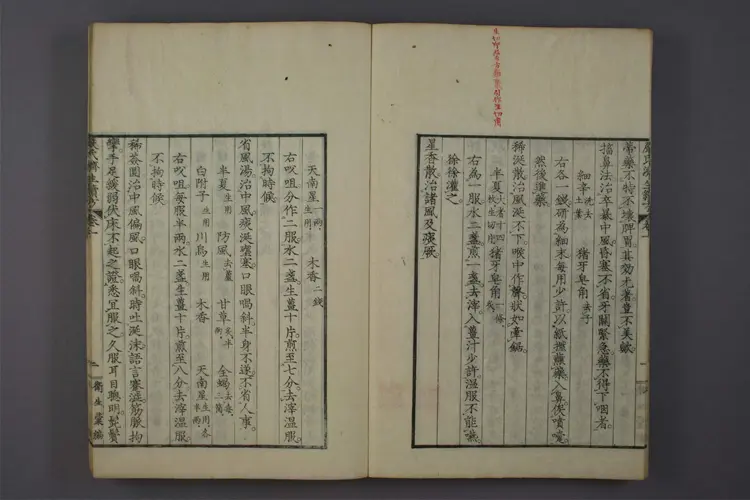 帶藥不特不壞脾胃其効尤著豈不美歟
搐鼻法治卒暴中風昏塞不省牙關緊急藥不得下咽者
細辛洗去土葉 猪牙皂角去子
右各一錢研為細末每用少許以紙撚蘸藥入鼻俟噴嚏
然後進藥
稀涎散治風涎不下喉中作聲狀如牽鋸
半夏大者十四枚生切 猪牙皂角一條炙
右為一服水二盞煎一盞去滓入薑汁少許溫服不能嚥
徐徐灌之
星香散治諸風及痰厥
天南星一兩生用 木香二錢
右㕮咀分作二服水二盞生薑十片煎至七分去滓溫服
不拘時候
省風湯治中風痰涎壅塞口眼喎斜半身不遂不省人事
半夏生用 防風去蘆 甘草炙半 全蝎去毒三箇
白附子生用 川烏生用 木香 天南星生用各半兩
右㕮咀每服半兩水二盞生薑十片煎至八分去滓溫服
不拘時候
稀薟圓治中風偏風口眼喎斜時吐涎沫語言蹇澁筋脈拘
攣手足緩弱伏床不起之證悉宜服之久服耳目聰明髭鬢
嚴氏濟生續方 卷一
衛生彙編